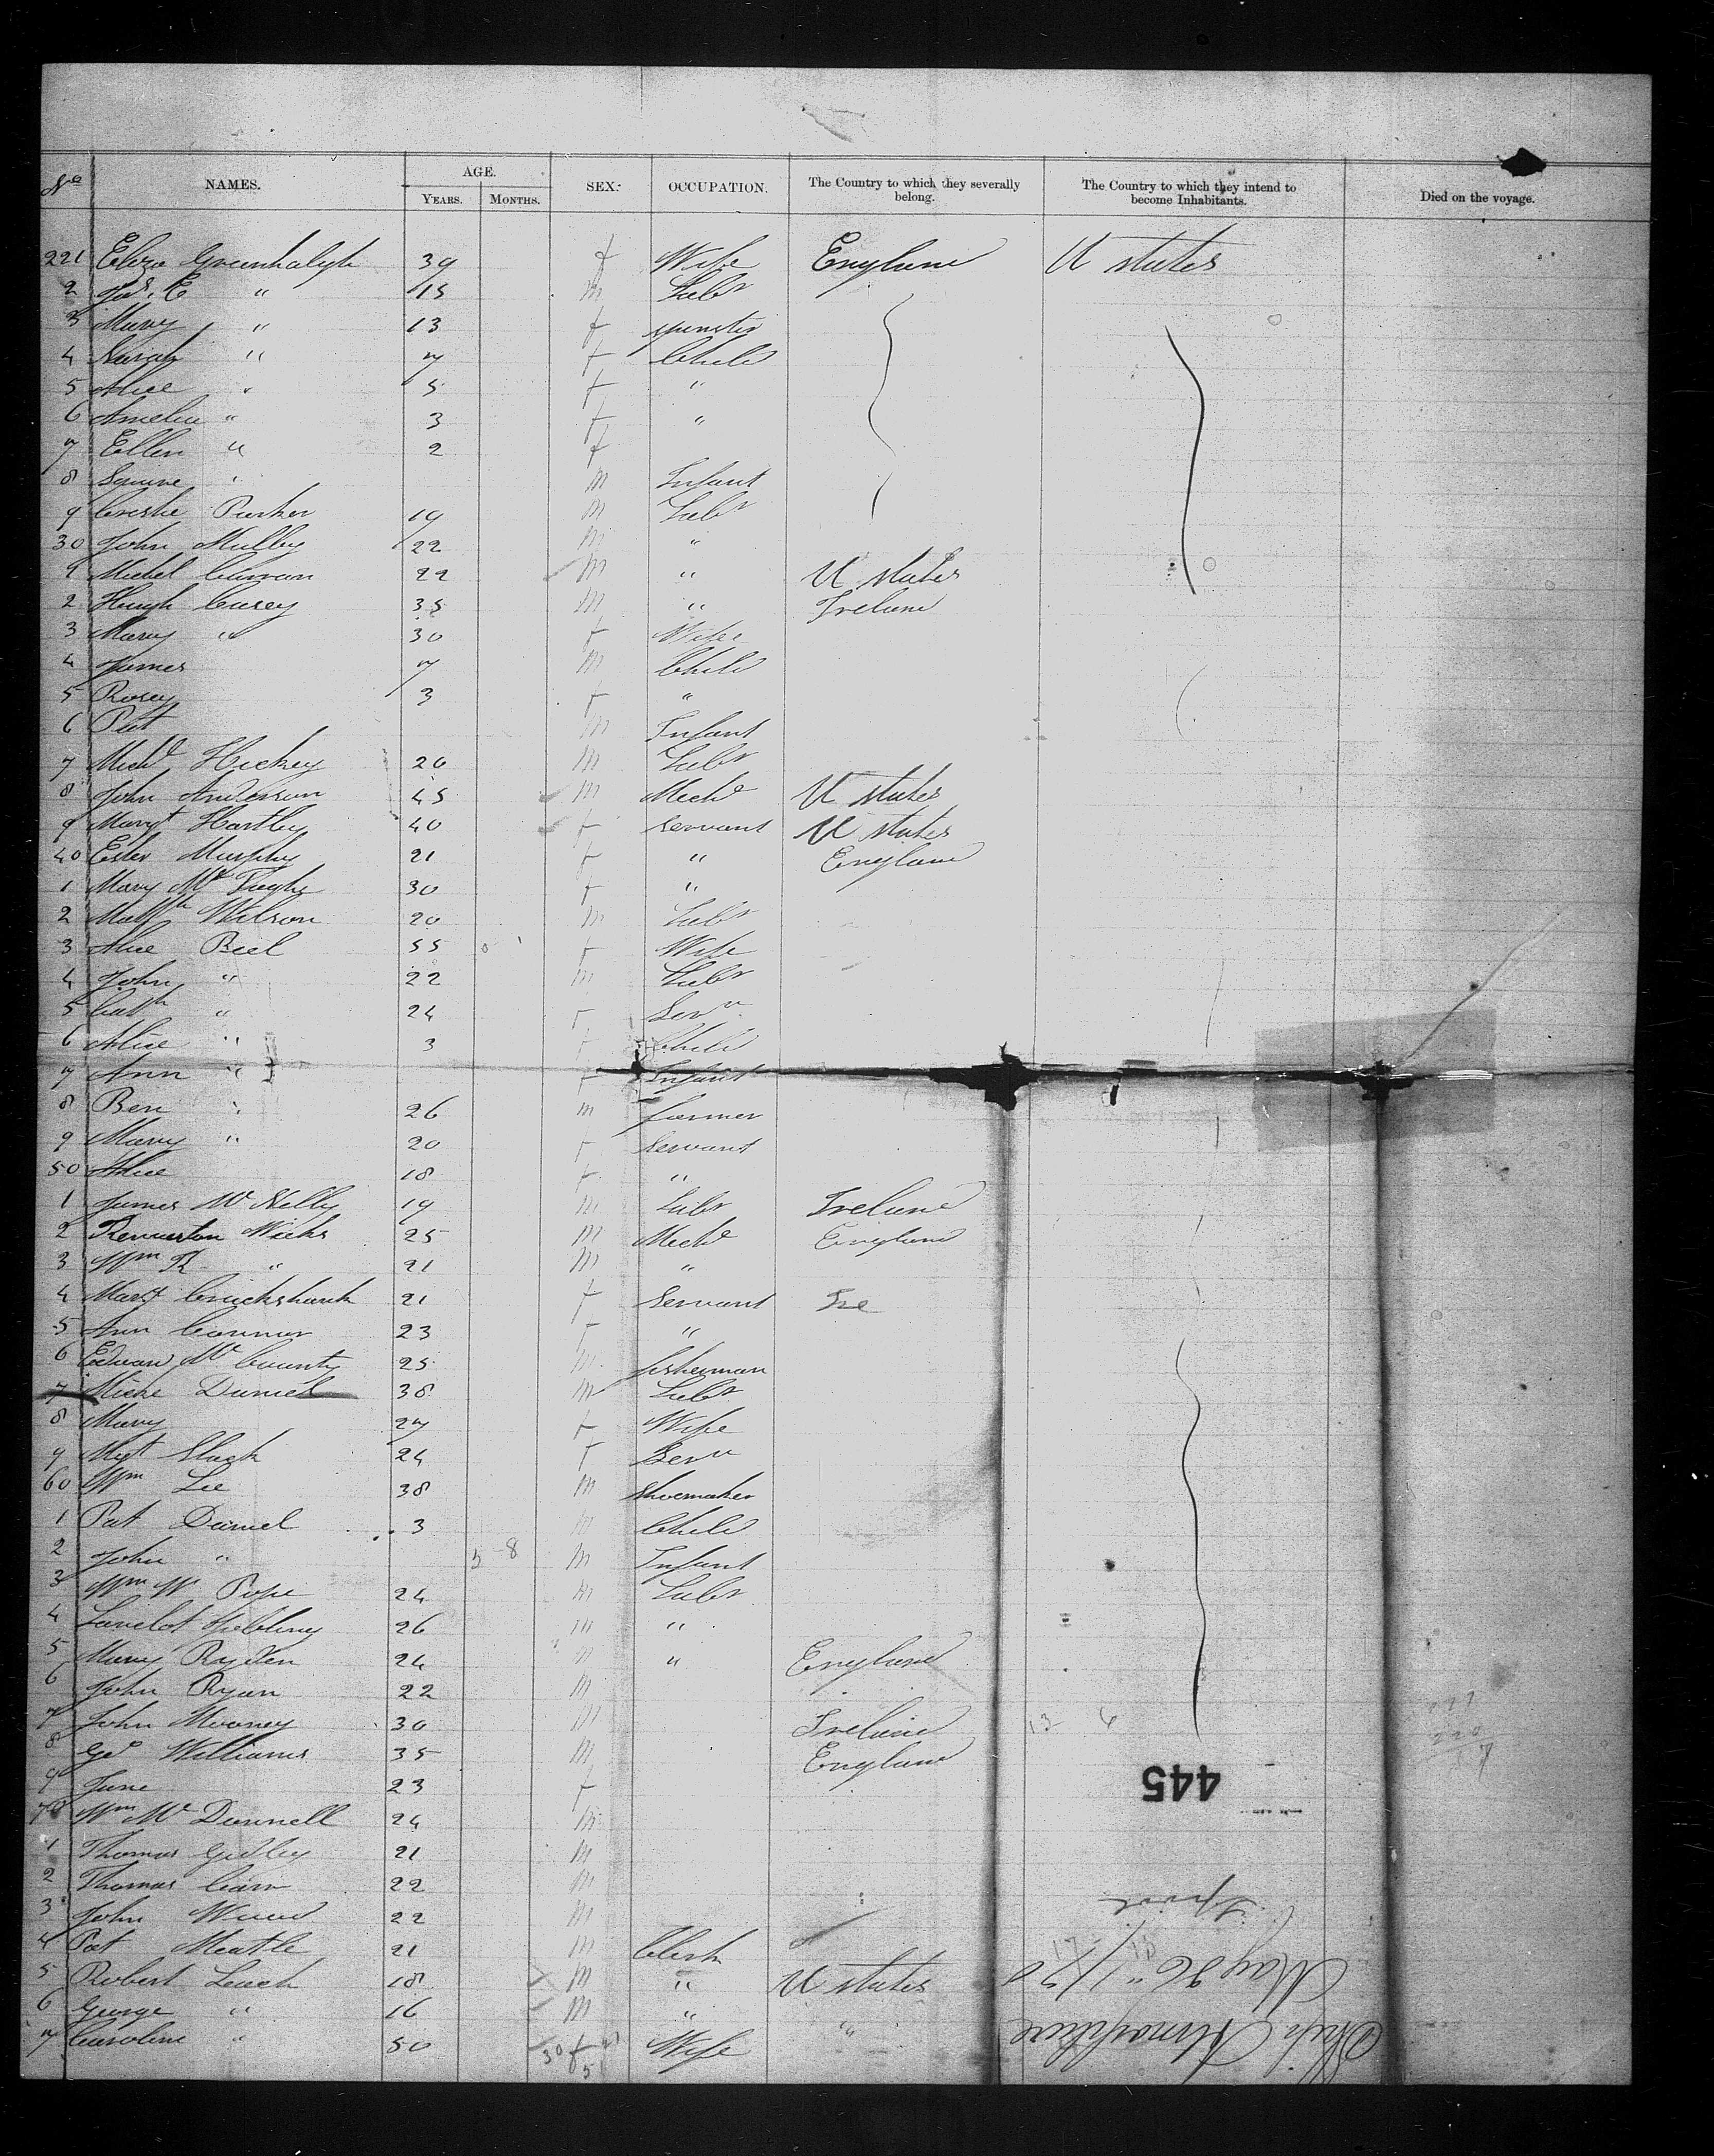 No NAMES. AGE. YEARS. MONTHS. SEX. OCCUPATION. The Country to which they severally belong. The Country to which they intend to become Inhabitants. Died on the voyage.
221 Eliza Greenhalgh 39 f Wife England U States
2 Jas. E " 15 m Labr
3 Mary " 13 f spinster
4 Sarah " 7 f Child
5 Alice " 5 f "
6 Amelia " 3 f "
7 Ellen " 2 f
8 Squire " m Infant
9 Parker 19 m Labr
30 John Mulby 22 m "
1 Michel Curran 22 m " U States
2 Hugh Casey 35 m " Ireland
3 Mary " 30 f Wife
4 James 7 m Child
5 Rosey 3 f "
6 Pat m Infant
7 Michl Hickey 20 m Labr
8 John Anderson 45 m Mechc U States
9 Margt Hartley 40 f Servant U States
40 Ester Murphy 21 f " England
1 Mary Mc 30 f "
2 Wilson 20 m Labr
3 Alice Beel 55 f Wife
4 John " 22 m Labr
5 Cath " 24 f Serv
6 Alice " 3 f Child
7 Ann " f Infant
8 Ben " 26 m farmer
9 Mary " 20 f Servant
50 Alice 18 f "
1 James Mc Nelly 19 m Labr Ireland
2 Wicks 25 m Mechc England
3 Wm R " 21 m "
4 Margt Cruickshank 21 f Servant Ire
5 Ann Connor 23 f "
6 Edward Mc County 25 m fisherman
7 Micke Daniel 38 m Labr
8 Mary 27 f Wife
9 Mgt Slack 24 f Serv
60 Wm Lee 38 m Shoemaker
1 Pat Daniel 3 m Child
2 John " 8 m Infant
3 Wm W Pope 24 m Labr
4 Lancelot 26 m "
5 Ryden 24 m " England
6 John Ryan 22 m
7 John Mooney 30 m Ireland 13 6
8 Geo Williams 35 m England
9 Jane 23 f
445
70 Wm Mc Donnell 24 m
1 Thomas Gidley 21 m
2 Thomas 22 m
3 John Wood 22 m
4 Pat 21 m Clerk
5 Robert Leach 18 m " U States
6 George " 16 m "
7 Caroline " 50 f Wife "
May 26" 1870
Ship